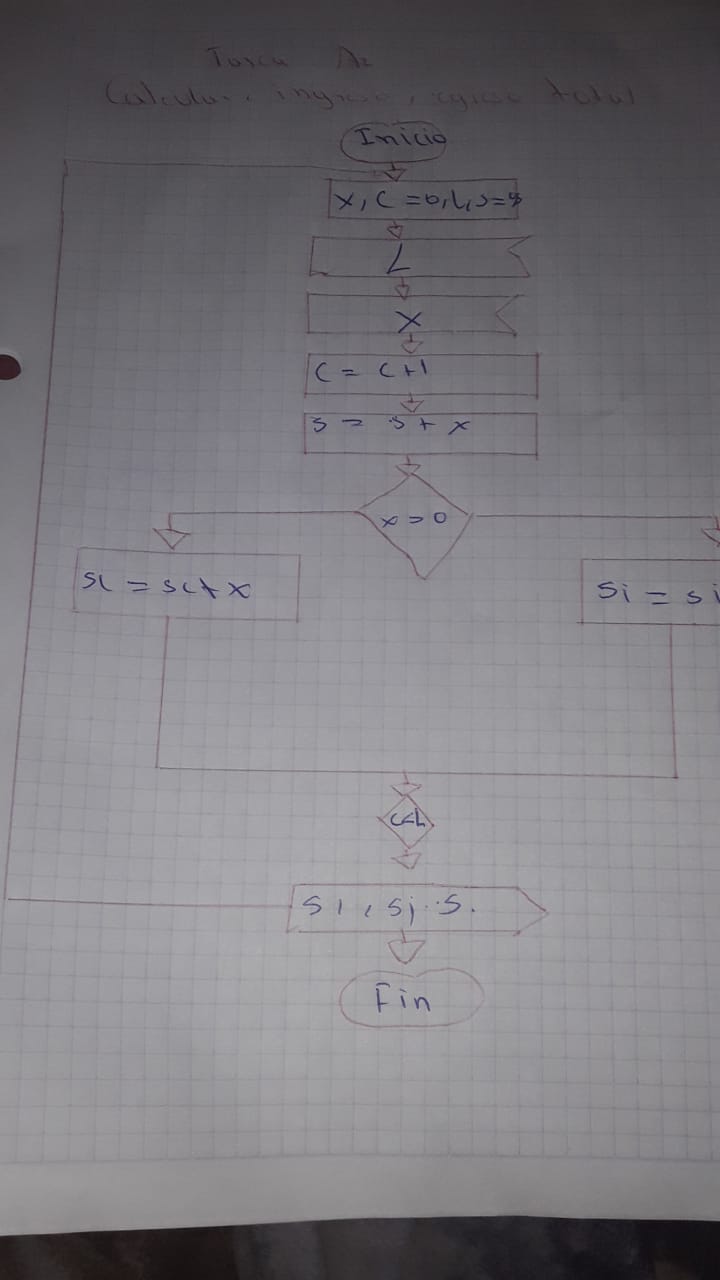 Tarea A2
Calcular ingreso, egreso total
Inicio
x, c = 0, L, s =
L
x
c = c+1
s = s + x
x > 0
= x
si = si
c<L
si s.
Fin